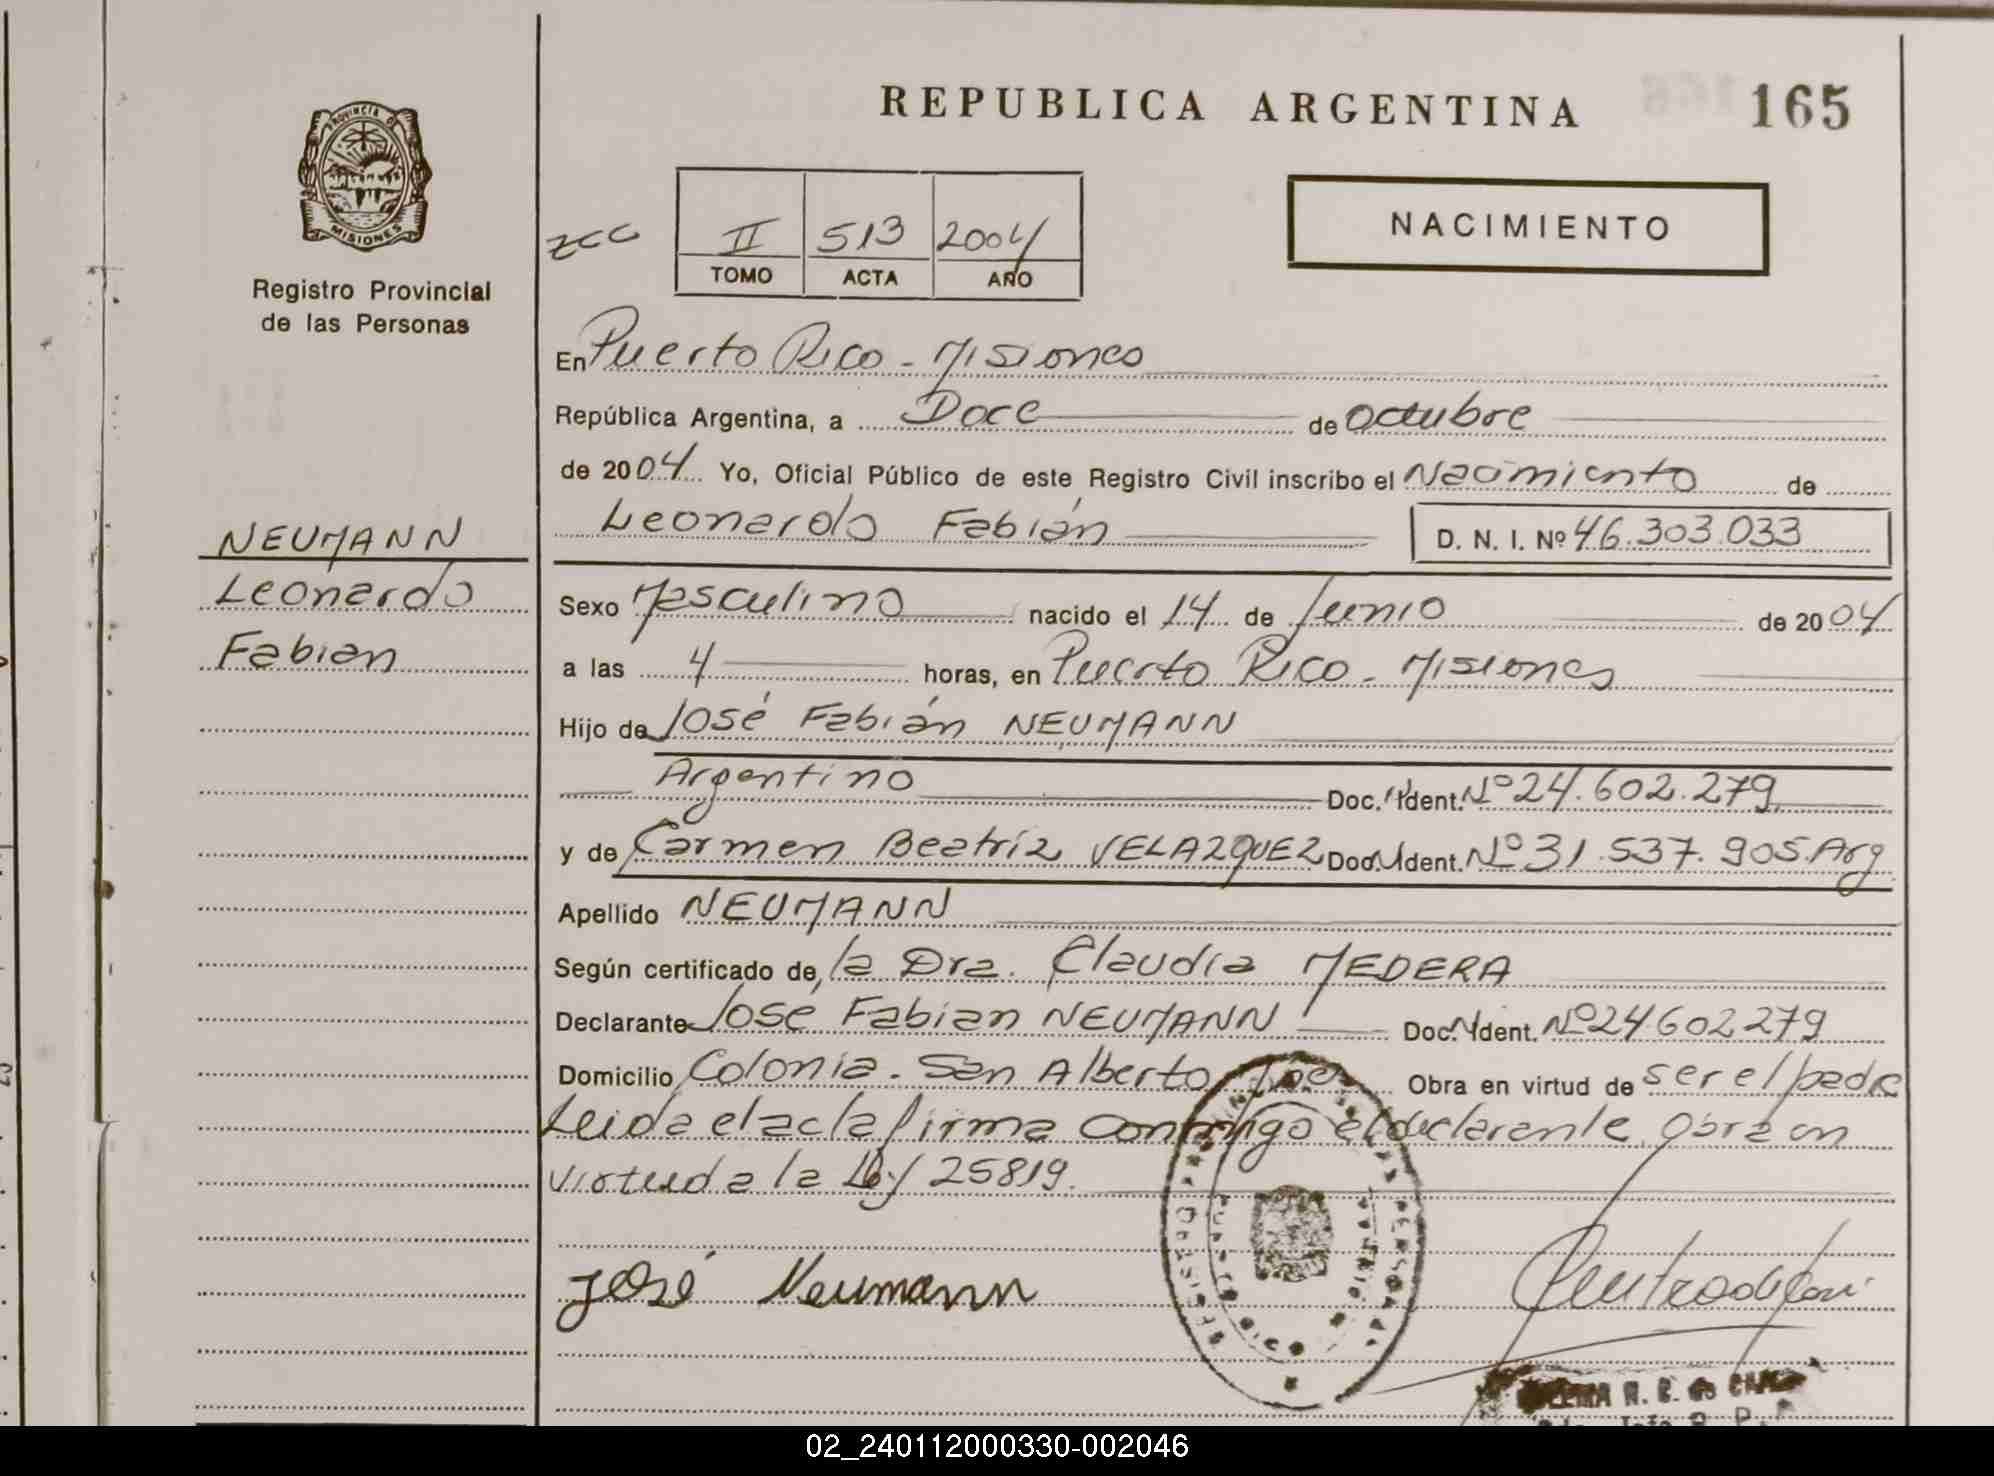 REPUBLICA ARGENTINA
165
PROVINCIA DE
MISIONES
Registro Provincial
de las Personas
II 513 2004
TOMO ACTA AÑO
NACIMIENTO
En Puerto Rico - Misiones
República Argentina, a Doce de octubre
de 2004 Yo, Oficial Público de este Registro Civil inscribo el Nacimiento de
Leonardo Fabián D. N. I. Nº 46.303.033
NEUMANN
Leonardo
Fabian
Sexo Masculino nacido el 14 de Junio de 2004
a las 4 horas, en Puerto Rico - Misiones
Hijo de José Fabián NEUMANN
Argentino Doc. Ident. Nº 24.602.279
y de Carmen Beatríz VELAZQUEZ Doc. Ident. Nº 31.537.905. Arg
Apellido NEUMANN
Según certificado de, la Dra. Claudia MEDERA
Declarante José Fabian NEUMANN Doc. Ident. Nº 24602279
Domicilio Colonia. San Alberto Obra en virtud de ser el padre
Leida el acta firma conmigo el declarante. Obra en
virtud a la Ley 25819.
José Neumann
02_240112000330-002046